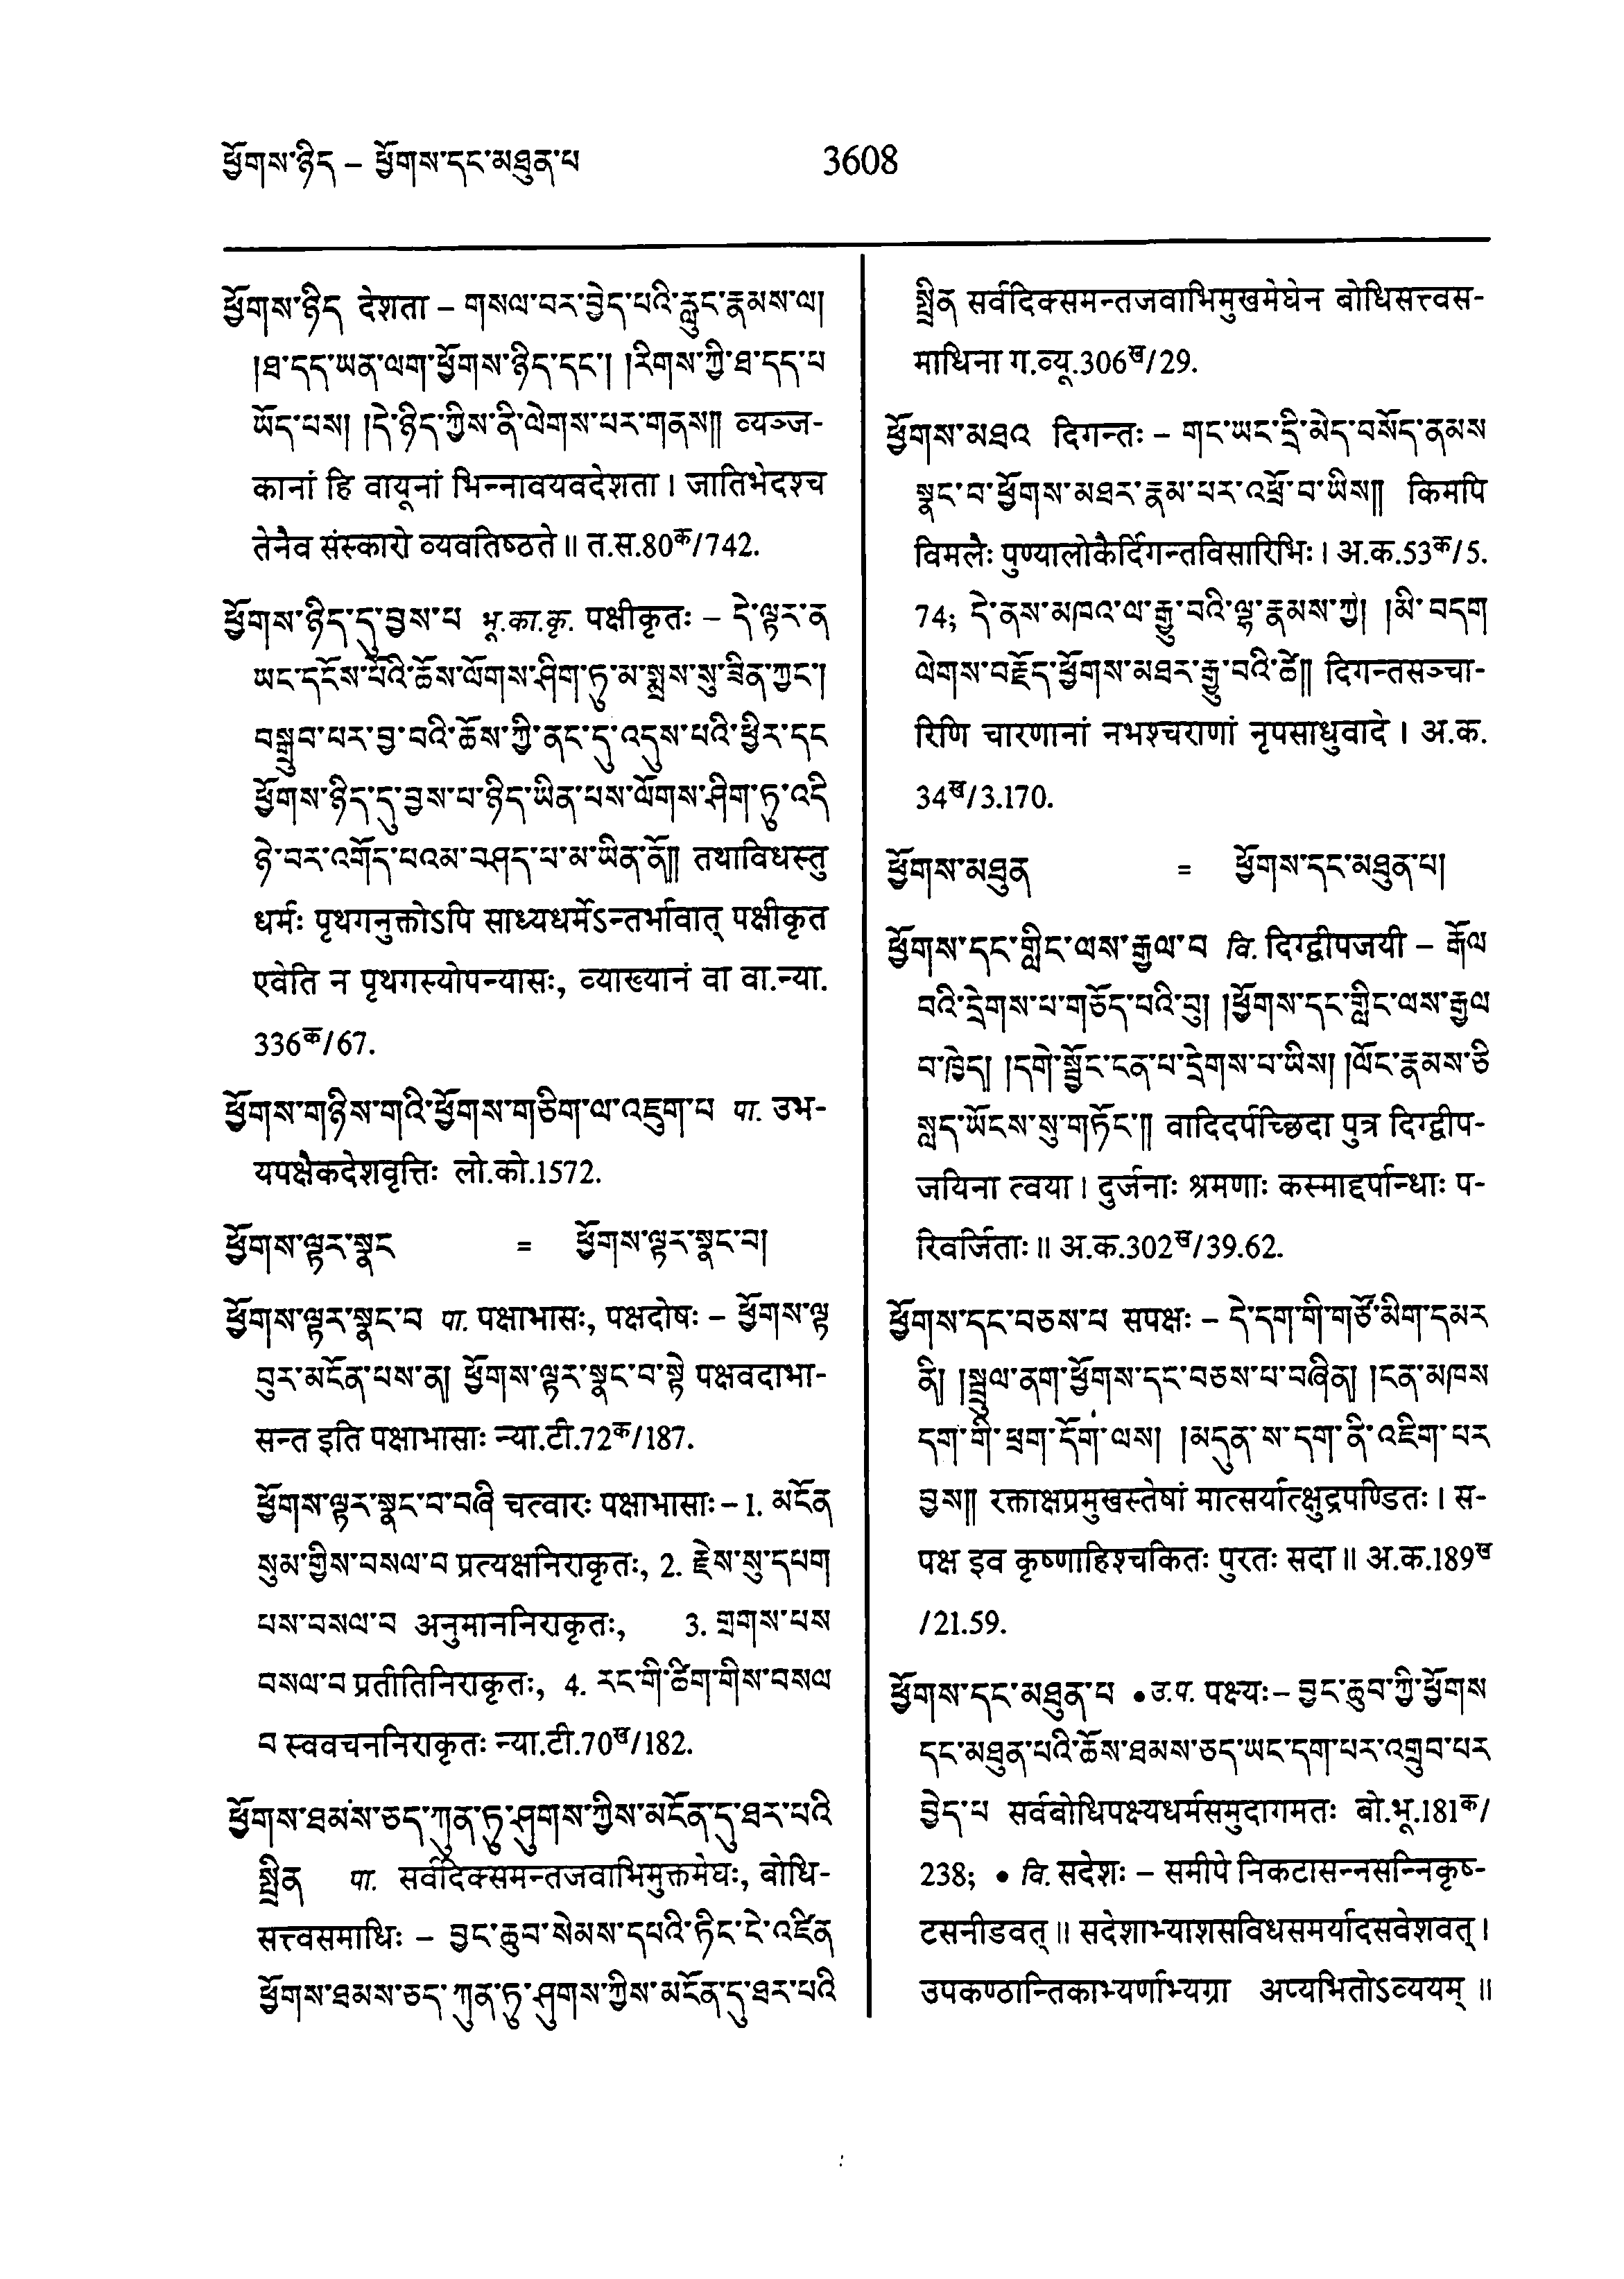 ཕྱོགས་ཉིད – ཕྱོགས་དང་མཐུན་པ
3608
ཕྱོགས་ཉིད देशता – གསལ་བར་བྱེད་པའི་རླུང་རྣམས་ལ།
།ཐ་དད་ཡན་ལག་ཕྱོགས་ཉིད་དང་། །རིགས་ཀྱི་ཐ་དད་པ
ཡོད་པས། །དེ་ཉིད་ཀྱིས་ནི་ལེགས་པར་གནས༎ व्यञ्ज-
कानां हि वायूनां भिन्नावयवदेशता। जातिभेदश्च
तेनैव संस्कारो व्यवतिष्ठते॥ त.स.80क/742.
ཕྱོགས་ཉིད་དུ་བྱས་པ भू.का.कृ. पक्षीकृतः – དེ་ལྟར་ན
ཡང་དངོས་པོའི་ཆོས་ལོགས་ཤིག་ཏུ་མ་སྨྲས་སུ་ཟིན་ཀྱང་།
བསྒྲུབ་པར་བྱ་བའི་ཆོས་ཀྱི་ནང་དུ་འདུས་པའི་ཕྱིར་དང
ཕྱོགས་ཉིད་དུ་བྱས་པ་ཉིད་ཡིན་པས་ལོགས་ཤིག་ཏུ་འདི
ཉེ་བར་འགོད་པའམ་བཤད་པ་མ་ཡིན་ནོ༎ तथाविधस्तु
धर्मः पृथगनुक्तोऽपि साध्यधर्मेऽन्तर्भावात् पक्षीकृत
एवेति न पृथगस्योपन्यासः, व्याख्यानं वा वा.न्या.
336क/67.
ཕྱོགས་གཉིས་གའི་ཕྱོགས་གཅིག་ལ་འཇུག་པ पा. उभ-
यपक्षैकदेशवृत्तिः लो.को.1572.
ཕྱོགས་ལྟར་སྣང = ཕྱོགས་ལྟར་སྣང་བ།
ཕྱོགས་ལྟར་སྣང་བ पा. पक्षाभासः, पक्षदोषः – ཕྱོགས་ལྟ
བུར་མངོན་པས་ན། ཕྱོགས་ལྟར་སྣང་བ་སྟེ पक्षवदाभा-
सन्त इति पक्षाभासाः न्या.टी.72क/187.
ཕྱོགས་ལྟར་སྣང་བ་བཞི चत्वारः पक्षाभासाः – 1. མངོན
སུམ་གྱིས་བསལ་བ प्रत्यक्षनिराकृतः, 2. རྗེས་སུ་དཔག
པས་བསལ་བ अनुमाननिराकृतः, 3. གྲགས་པས
བསལ་བ प्रतीतिनिराकृतः, 4. རང་གི་ཚིག་གིས་བསལ
བ स्ववचननिराकृतः न्या.टी.70ख/182.
ཕྱོགས་ཐམས་ཅད་ཀུན་ཏུ་ཤུགས་ཀྱིས་མངོན་དུ་ཐར་པའི
སྤྲིན पा. सर्वदिक्समन्तजवाभिमुक्तमेघः, बोधि-
सत्त्वसमाधिः – བྱང་ཆུབ་སེམས་དཔའི་ཏིང་ངེ་འཛིན
ཕྱོགས་ཐམས་ཅད་ཀུན་ཏུ་ཤུགས་ཀྱིས་མངོན་དུ་ཐར་པའི
སྤྲིན सर्वदिक्समन्तजवाभिमुखमेघेन बोधिसत्त्वस-
माधिना ग.व्यू.306ख/29.
ཕྱོགས་མཐའ दिगन्तः – གང་ཡང་དྲི་མེད་བསོད་ནམས
སྣང་བ་ཕྱོགས་མཐར་རྣམ་པར་འཕྲོ་བ་ཡིས༎ किमपि
विमलैः पुण्यालोकैर्दिगन्तविसारिभिः। अ.क.53क/5.
74; དེ་ནས་མཁའ་ལ་རྒྱུ་བའི་ལྷ་རྣམས་ཀྱི། །མི་བདག
ལེགས་བརྗོད་ཕྱོགས་མཐར་རྒྱུ་བའི་ཚེ༎ दिगन्तसञ्चा-
रिणि चारणानां नभश्चराणां नृपसाधुवादे। अ.क.
34ख/3.170.
ཕྱོགས་མཐུན = ཕྱོགས་དང་མཐུན་པ།
ཕྱོགས་དང་གླིང་ལས་རྒྱལ་བ वि. दिग्द्वीपजयी – རྒོལ
བའི་དྲེགས་པ་གཅོད་པའི་བུ། །ཕྱོགས་དང་གླིང་ལས་རྒྱལ
བ་ཁྱེད། །དགེ་སྦྱོང་ངན་པ་དྲེགས་པ་ཡིས། །ལོང་རྣམས་ཅི
སླད་ཡོངས་སུ་གཏོང་༎ वादिदर्पच्छिदा पुत्र दिग्द्वीप-
जयिना त्वया। दुर्जनाः श्रमणाः कस्माद्दर्पान्धाः प-
रिवर्जिताः॥ अ.क.302ख/39.62.
ཕྱོགས་དང་བཅས་པ सपक्षः – དེ་དག་གི་གཙོ་མིག་དམར
ནི། །སྦྲུལ་ནག་ཕྱོགས་དང་བཅས་པ་བཞིན། །ངན་མཁས
དག་གི་ཕྲག་དོག་ལས། །མདུན་ས་དག་ནི་འཇིག་པར
བྱས༎ रक्ताक्षप्रमुखस्तेषां मात्सर्यात्क्षुद्रपण्डितः। स-
पक्ष इव कृष्णाहिश्चकितः पुरतः सदा॥ अ.क.189ख
/21.59.
ཕྱོགས་དང་མཐུན་པ • उ.प. पक्ष्यः – བྱང་ཆུབ་ཀྱི་ཕྱོགས
དང་མཐུན་པའི་ཆོས་ཐམས་ཅད་ཡང་དག་པར་འགྲུབ་པར
བྱེད་པ सर्वबोधिपक्ष्यधर्मसमुदागमतः बो.भू.181क/
238; • वि. सदेशः – समीपे निकटासन्नसन्निकृष-
टसनीडवत्॥ सदेशाभ्याशसविधसमर्यादसवेशवत्।
उपकण्ठान्तिकाभ्यर्णाभ्यग्रा अप्यभितोऽव्ययम्॥